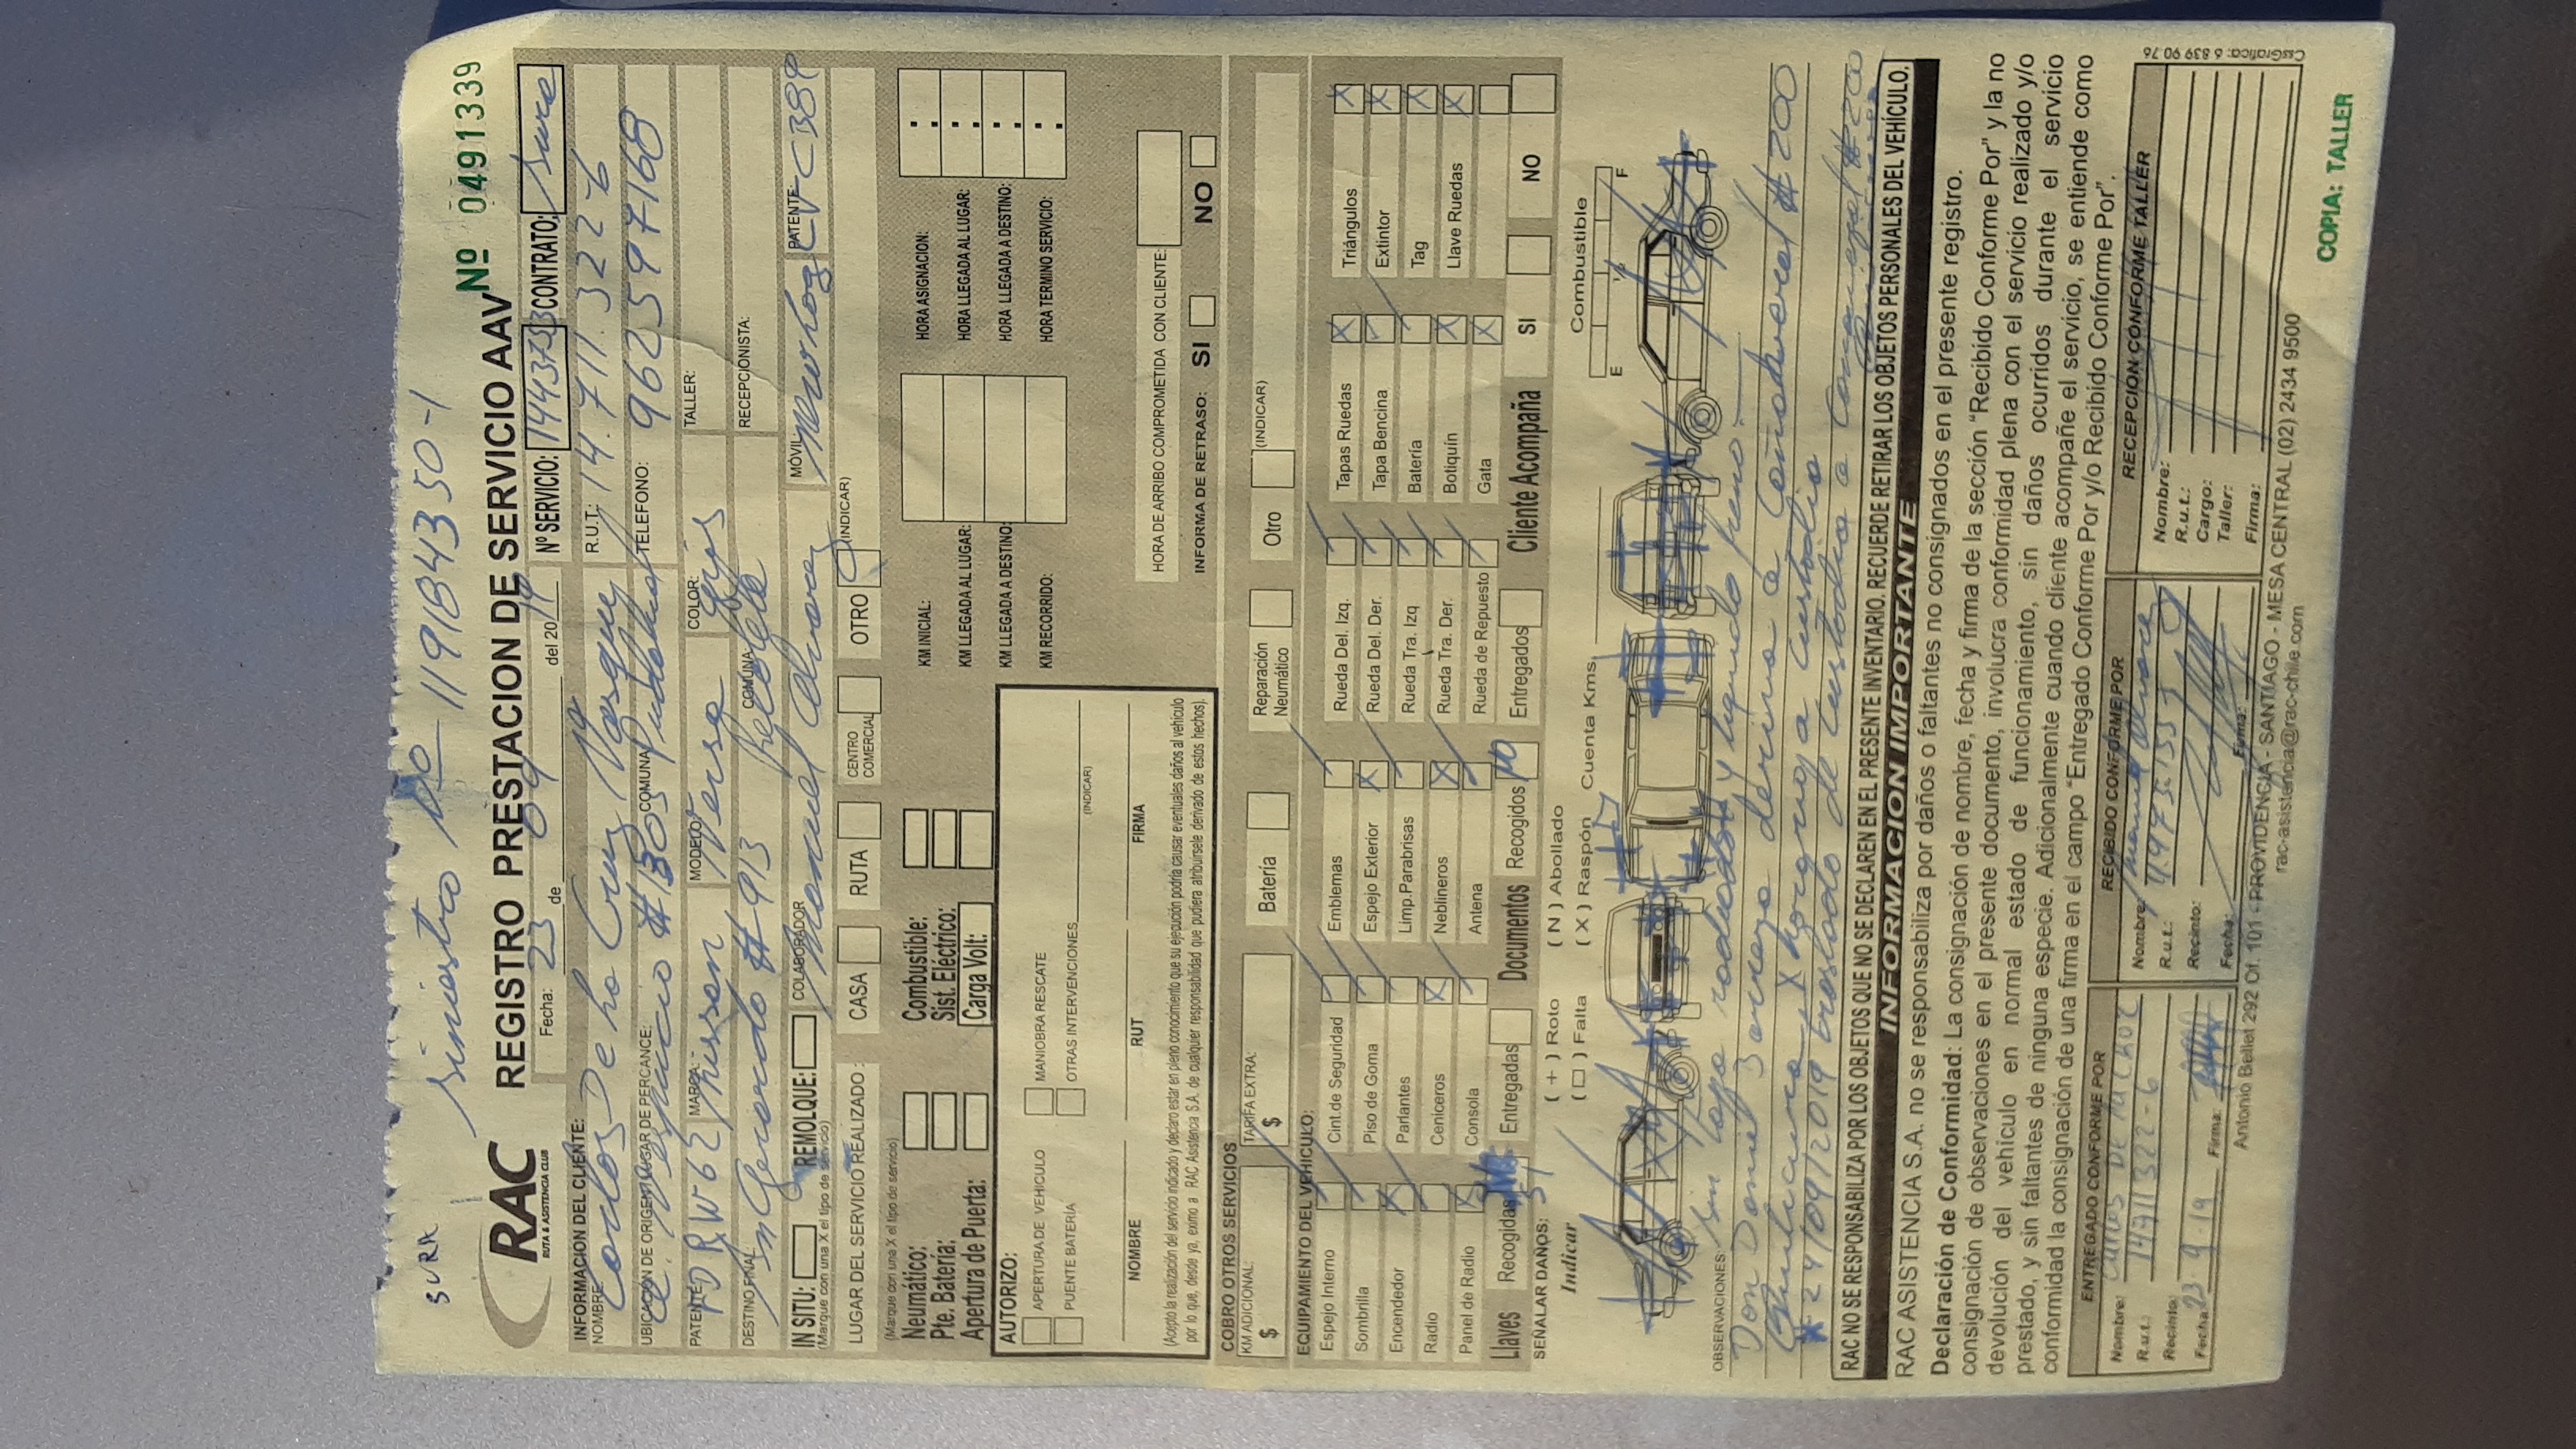 SURA
Siniestro No 119184350-1
RAC
RUTA & ASISTENCIA CLUB
REGISTRO PRESTACION DE SERVICIO AAV Nº 0491339
Fecha: 23 de 09 del 2019 Nº SERVICIO: CONTRATO: Sura
INFORMACION DEL CLIENTE:
NOMBRE: Carlos De La Cruz R.U.T.: 14.711.322-6
UBICACIÓN DE ORIGEN/LUGAR DE PERCANCE: #1305 COMUNA: Pudahuel TELEFONO: 962597168
PATENTE: MARCA: Nissan MODELO: Versa COLOR: Gris TALLER:
DESTINO FINAL: San Gerardo #913 COMUNA: Recoleta RECEPCIONISTA:
IN SITU: REMOLQUE: COLABORADOR: Manuel Alvarez MÓVIL: PATENTE:
(Marque con una X el tipo de servicio)
LUGAR DEL SERVICIO REALIZADO: CASA RUTA CENTRO COMERCIAL OTRO (INDICAR)
(Marque con una X el tipo de servicio)
Neumático: Combustible:
Pte. Batería: Sist. Eléctrico:
Apertura de Puerta: Carga Volt:
KM INICIAL: HORA ASIGNACION:
KM LLEGADA AL LUGAR: HORA LLEGADA AL LUGAR:
KM LLEGADA A DESTINO: HORA LLEGADA A DESTINO:
KM RECORRIDO: HORA TERMINO SERVICIO:
AUTORIZO:
APERTURA DE VEHICULO MANIOBRA RESCATE
PUENTE BATERIA OTRAS INTERVENCIONES (INDICAR)
NOMBRE RUT FIRMA
(Acepto la realización del servicio indicado y declaro estar en pleno conocimiento que su ejecución podría causar eventuales daños al vehículo
por lo que, desde ya, eximo a RAC Asistencia S.A. de cualquier responsabilidad que pudiera atribuírsele derivado de estos hechos).
HORA DE ARRIBO COMPROMETIDA CON CLIENTE:
INFORMA DE RETRASO: SI NO
COBRO OTROS SERVICIOS
KM ADICIONAL: $ TARIFA EXTRA: $ Batería Reparación Neumático Otro (INDICAR)
EQUIPAMIENTO DEL VEHICULO:
Espejo Interno Cint.de Seguridad Emblemas Rueda Del. Izq. Tapas Ruedas X Triángulos X
Sombrilla Piso de Goma Espejo Exterior X Rueda Del. Der. Tapa Bencina Extintor X
Encendedor X Parlantes Limp.Parabrisas Rueda Tra. Izq Batería Tag X
Radio Ceniceros X Neblineros X Rueda Tra. Der. Botiquín X Llave Ruedas X
Panel de Radio X Consola Antena Rueda de Repuesto Gata X
Llaves Recogidas Entregadas Documentos Recogidos NO Entregados Cliente Acompaña SI NO
SEÑALAR DAÑOS: SI
Indicar ( + ) Roto ( N ) Abollado
( □ ) Falta ( X ) Raspón Cuenta Kms. Combustible
E ½ F
OBSERVACIONES: Sin y liquido freno.
Don Daniel deriva a #200
X a custodia
*24/09/2019 traslado de custodia a #200
RAC NO SE RESPONSABILIZA POR LOS OBJETOS QUE NO SE DECLAREN EN EL PRESENTE INVENTARIO. RECUERDE RETIRAR LOS OBJETOS PERSONALES DEL VEHÍCULO.
INFORMACION IMPORTANTE
RAC ASISTENCIA S.A. no se responsabiliza por daños o faltantes no consignados en el presente registro.
Declaración de Conformidad: La consignación de nombre, fecha y firma de la sección "Recibido Conforme Por" y la no
consignación de observaciones en el presente documento, involucra conformidad plena con el servicio realizado y/o
devolución del vehículo en normal estado de funcionamiento, sin daños ocurridos durante el servicio
prestado, y sin faltantes de ninguna especie. Adicionalmente cuando cliente acompañe el servicio, se entiende como
conformidad la consignación de una firma en el campo "Entregado Conforme Por y/o Recibido Conforme Por".
ENTREGADO CONFORME POR
Nombre: Carlos De la Cruz
R.u.t.: 14711322-6
Recinto:
Fecha: 23-9-19 Firma:
RECIBIDO CONFORME POR
Nombre: Manuel Alvarez
R.u.t.:
Recinto:
Fecha: Firma:
RECEPCIÓN CONFORME TALLER
Nombre:
R.u.t.:
Cargo:
Taller:
Firma:
Antonio Bellet 292 Of. 101 - PROVIDENCIA - SANTIAGO - MESA CENTRAL (02) 2434 9500
rac-asistencia@rac-chile.com
CssGrafica: 6 839 90 76
COPIA: TALLER